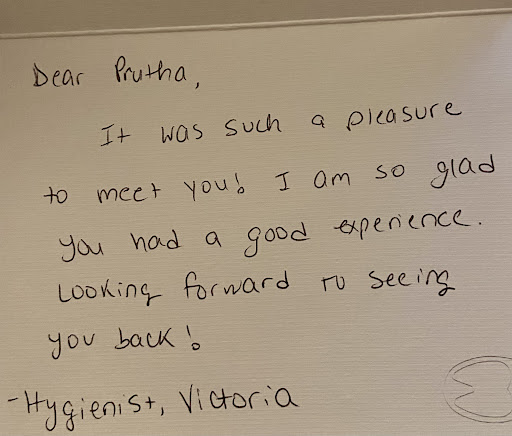 Dear Prutha,
It was such a pleasure
to meet you! I am so glad
you had a good experience.
Looking forward to seeing
you back!
-Hygienist, Victoria